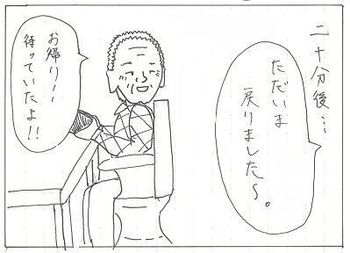 二十分後…
ただいま
戻りました〜。
お帰りー！
待っていたよ!!